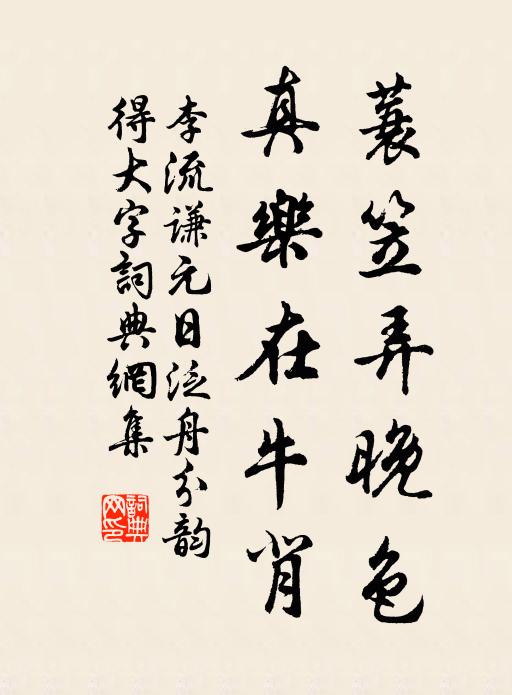 蓑笠弄晚色
真樂在牛背
李流謙元日泛舟分韵
得大字詞典網集
詞典
网印